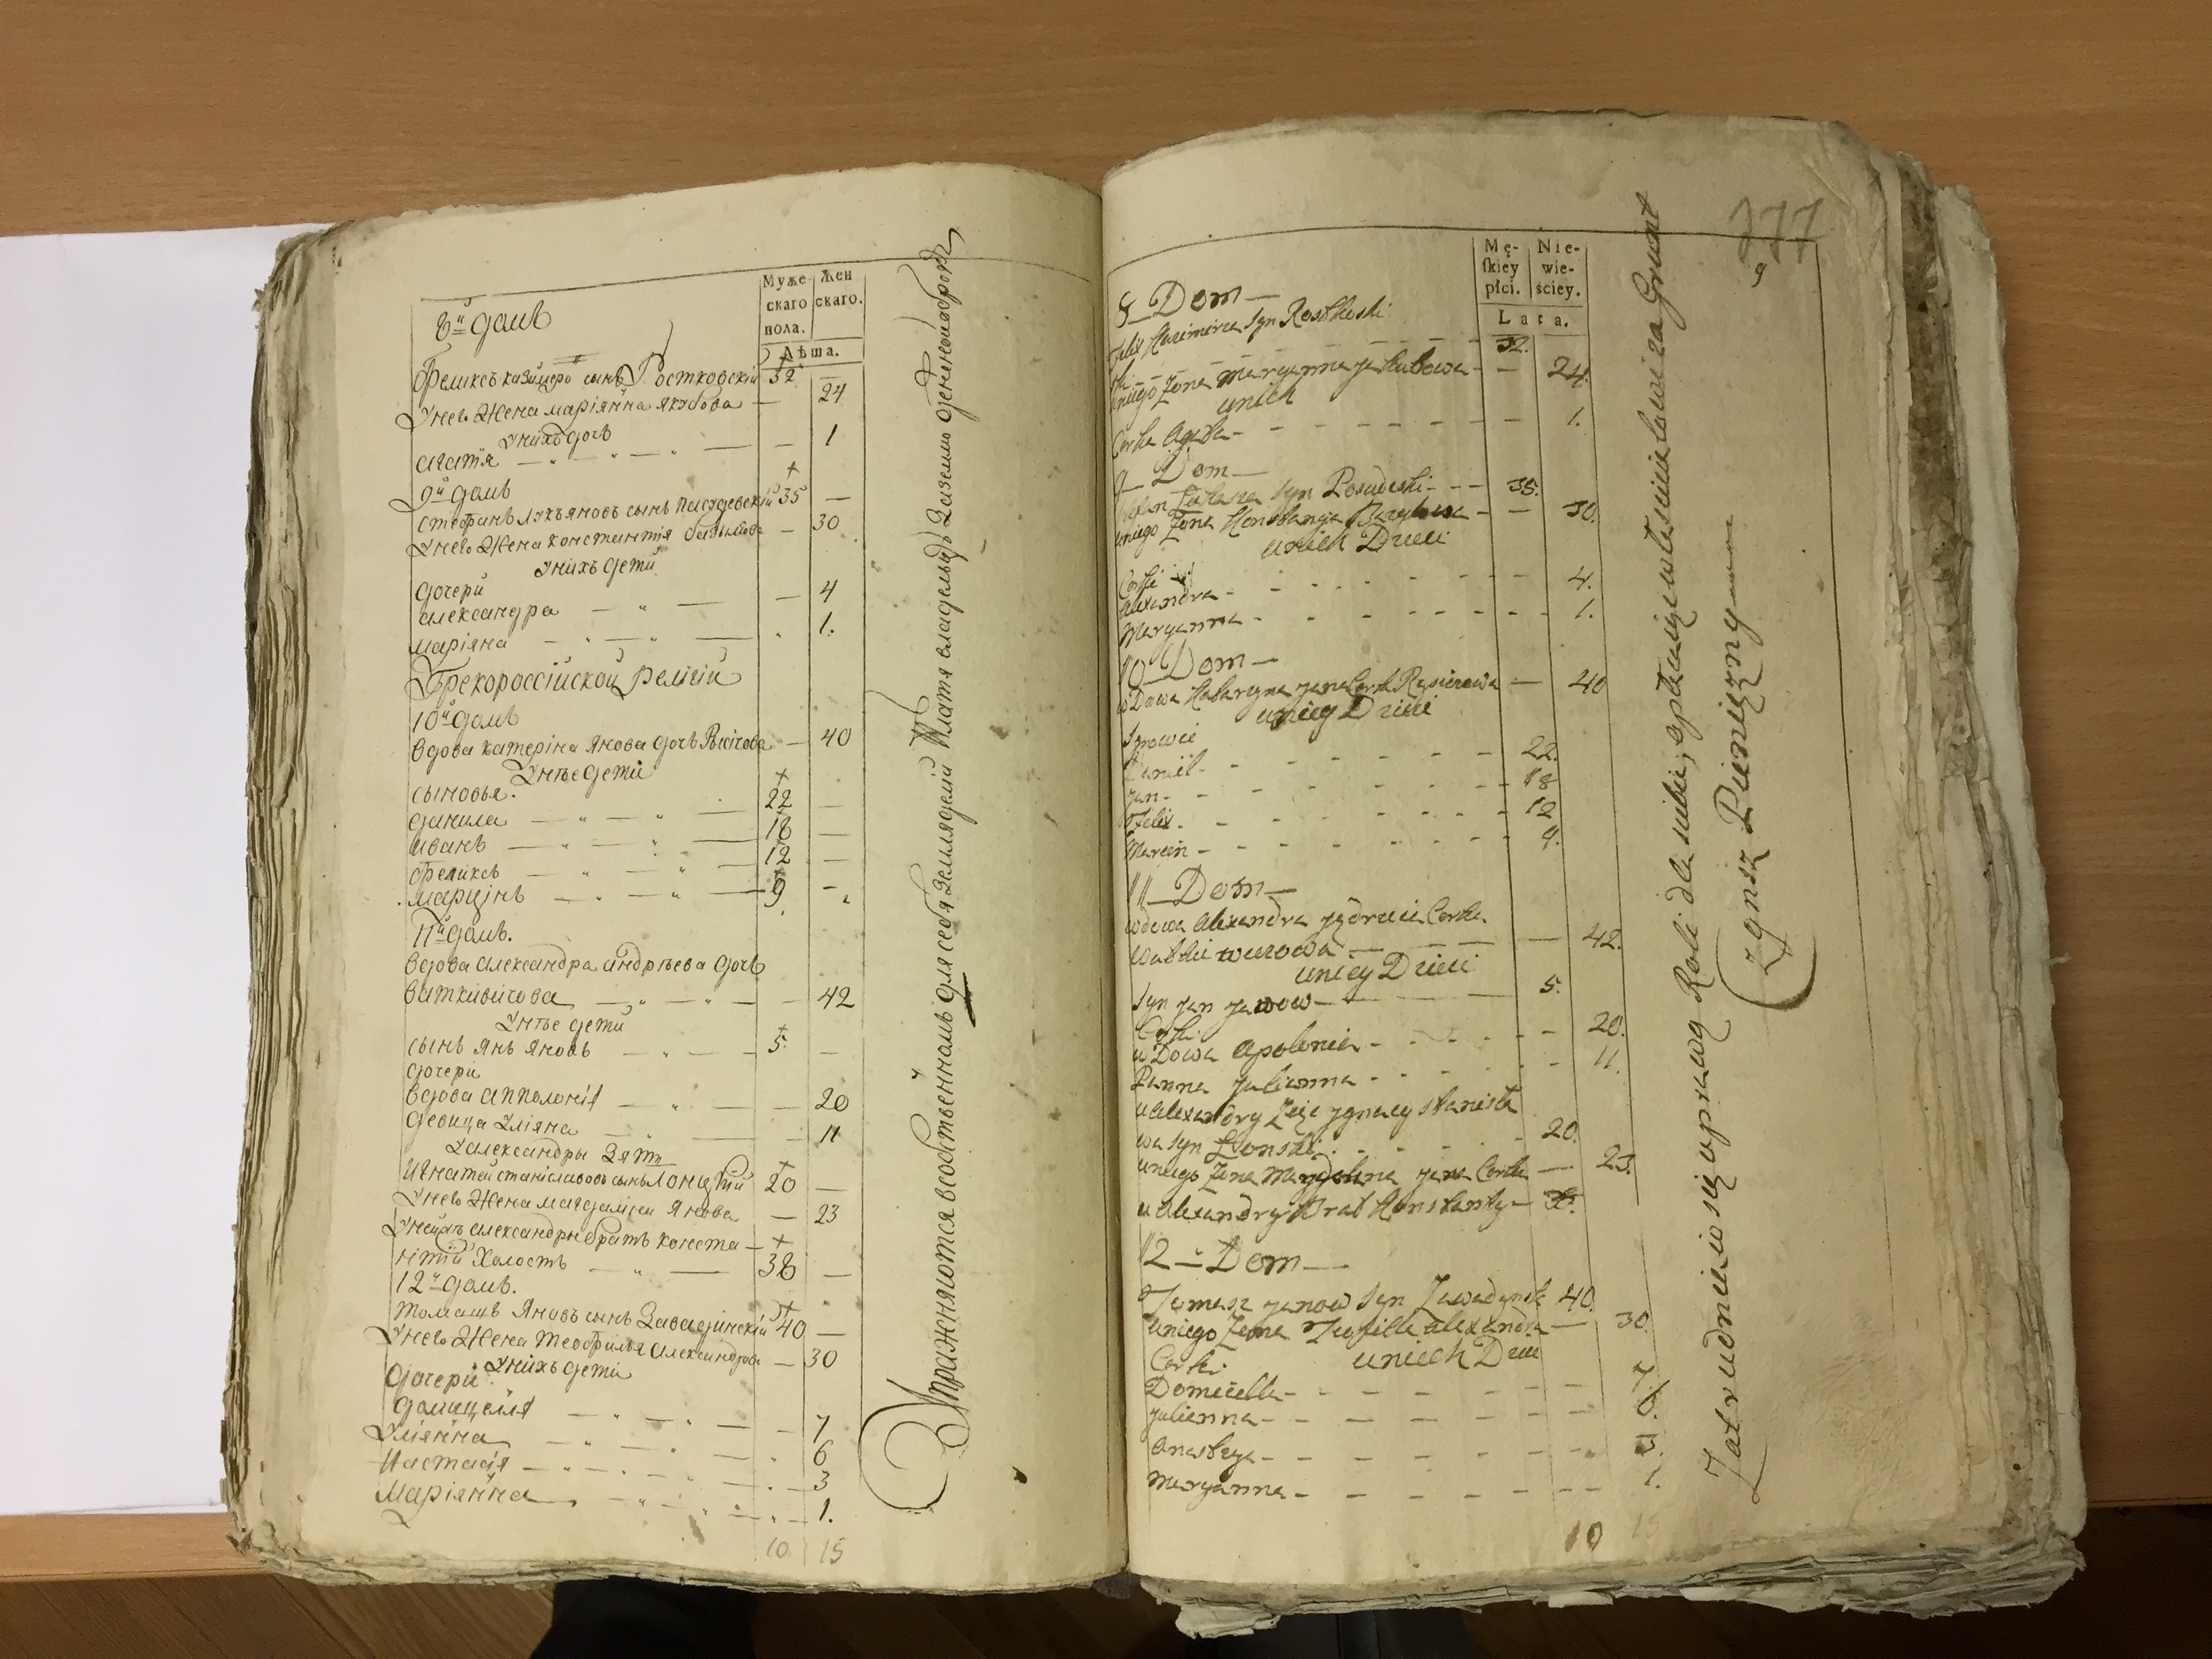 Муже- Жен
скаго скаго.
пола.
Лѣта.
8й домъ
Феликсъ казимеро сынъ Ростковскій 32
У него Жена маріянна якубова — 24
У нихъ дочь
агатя — 1
9й домъ
стефанъ лукъяновъ сынъ 35 —
У него Жена константія — 30
У нихъ дети
дочери
александра — 4
маріяна — 1.
Грекороссійской релігіи
10й домъ
вдова катеріна янова дочь — 40
У нѣе дети
сыновья.
данила 22 —
иванъ 18 —
феликсъ 12 —
марцінъ 9 —
11й домъ.
вдова александра андрѣева дочь
виткивичова — 42
У нѣе дети
сынъ янъ яновъ 5. —
дочери
вдова апполонія — 20
девица уліяна — 11
У александры зять
игнатей станіславовъ сынъ 20 —
У него Жена магдалина янова — 23
александры братъ конста-
нтій холостъ 38 —
12й домъ.
томашъ яновъ сынъ Завадзинскій 40 —
У него Жена теофилья александрова — 30
У нихъ дети
Дочери
домицелія 7
Уліянна 6
Настасія 3
Маріянна 1.
10 15
Упражняются в собственномъ для себя земледеліи платя владельцу за землю денежной оброкъ
377
9
Mę- Nie-
skiey wie-
płci. ściey.
Lata.
8 Dom
Felix Kazimierza Syn Rostkoski
32.
uniego Zona Maryanna Jakubowa — 24.
unich
Corka Agata 1.
9 Dom
Stefan Łukasza Syn 35.
uniego Zona Konstancya — 30.
unich Dzieci
Corki
Alexandra 4.
Maryanna 1.
10 Dom
wDowa Katarzyna Jana Corka — 40
uniey Dzieci
Synowie
Daniel 22.
Jan 18
Felix 12
Marcin 9.
11 Dom
wdowa Alexandra Jędrzeia Corka
— 42.
uniey Dzieci
Syn Jan Janow 5.
Corki
wDowa Apolonia 20.
Panna Julianna 11.
u Alexandry Zięc Ignacy Stanisła
wa Syn 20.
uniego Zona Magdalena Jana Corka — 23.
u Alexandry Brat Konstanty 38.
12 Dom
Tomasz Janow Syn 40.
uniego Zona Teofilla Alexandra — 30.
unich Dzieci
Corki
Domicella 7.
Julianna 6.
Anastazya 3.
Maryanna 1.
10 15
Zatrudnieniesię uprawą Roli dla siebie, opłacaiąc właścicielowi za Grunt
Czynsz Pieniężny